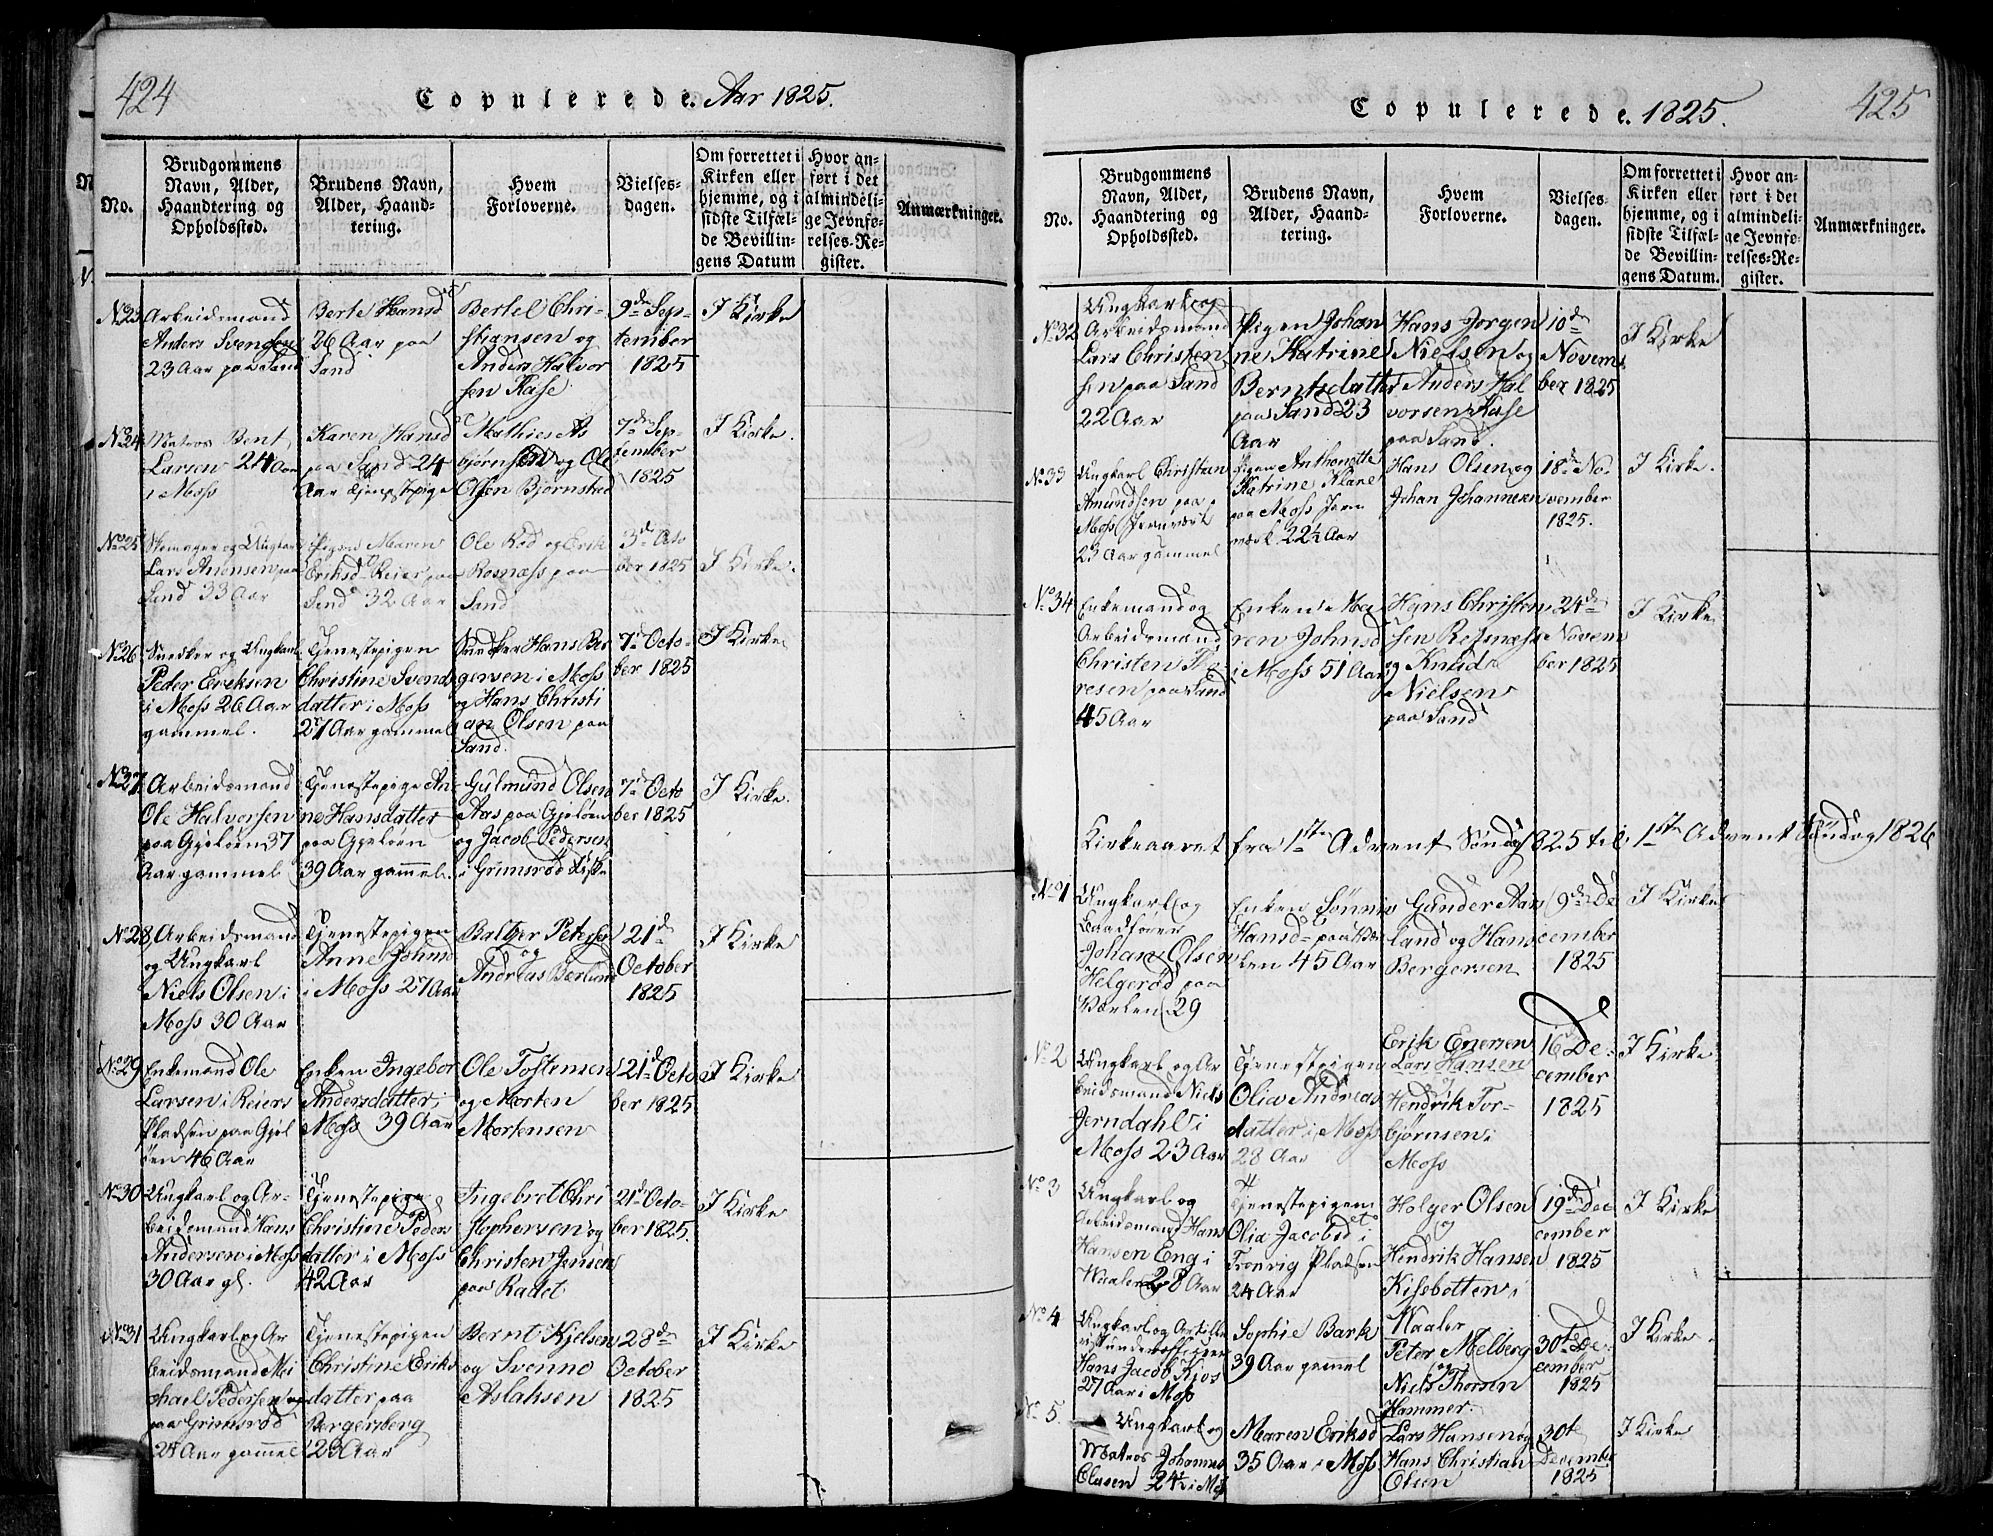 424
Copulerede. Aar 1825.
No.
Brudgommens
Navn, Alder,
Haandtering og
Opholdssted.
Brudens Navn,
Alder, Haand-
tering.
Hvem
Forloverne.
Vielses-
dagen.
Om forrettet i
Kirken eller
hjemme, og i
sidste Tilfæl-
de Bevillin-
gens Datum
Hvor an-
ført i det
almindeli-
ge Jevnfø-
relses-Re-
gister.
Anmærkninger.
No 23
Arbeidsmand
Anders Svendsen
23 Aar paa Sand
Berte Hansd
26 Aar paa
Sand
Bertel Chri-
stiansen og
Anders Halvor
sen Kase
9de Sep-
tember
1825
I Kirke
No 24
Matros Bent
Larsen 24 Aar
i Moss
Karen Hansd
paa Sand 24
Aar Tjenestepige
Mathies As
bjørnsen og Ole
Olsen Bjørnstad
7de Sep-
tember
1825
I Kirke.
No 25
Skomager og Ungkarl
Lars Anonsen paa
Sand 33 Aar
Pigen Maren
Eriksd Reier paa
Sand 32 Aar
Ole Rød og Erik
Rosnæss paa
Sand
3d Oto
ber 1825
I Kirke.
No 26
Snedker og Ungkarl
Peder Eriksen
i Moss 26 Aar
gammel.
Tjenestepigen
Christine Svends
datter i Moss
27 Aar gammel
Snedker Hans Ber
gersen i Moss
og Hans Christi
an Olsen paa
Sand.
7de Octo-
ber 1825
I Kirke
No 37
Arbeidsmand
Ole Halvorsen
paa Gjeløen 37
Aar gammel
Tjenestepige An
ne Hansdatter
paa Gjeløen
39 Aar gammel.
Gulmund Olsen
Aas paa Gjeløen
og Jacob Pedersen
i Grimsrød
7de Octo
ber 1825
I Kirke.
No 28
Arbeidsmand
og Ungkarl
Niels Olsen i
Moss 30 Aar
Tjenestepigen
Anne Johnsd
i Moss 27 Aar
Baltzer Petersen
og
Andreas Bærlund
21de
October
1825
I Kirke
No 29
Enkemand Ole
Larsen i Reiers
Pladsen paa Gjel
øen 46 Aar
Enken Ingebor
Andersdatter i
Moss 39 Aar
Ole Tostensen
og Morten
Mortensen
21de Octo
ber 1825
I Kirke
No 30
Ungkarl og Ar-
beidsmand Hans
Andersen i Moss
30 Aar gl.
Tjenestepige
Christine Peders
datter i Moss
42 Aar
Ingebret Chri
stophersen og
Christen Jensen
paa Radet
21de Octo-
ber 1825.
I Kirke
No 31
Ungkarl og Ar
beidsmand Mi
chael Pedersen
paa Grimsrød
24 Aar gammel
Tjenestepigen
Christine Eriks
datter paa
Bergersberg
23 Aar
Bernt Kjelsen
og Svenno
Aslaksen
28de
October
1825
I Kirke
Copulerede. 1825.
425
No.
Brudgommens
Navn, Alder,
Haandtering og
Opholdssted.
Brudens Navn,
Alder, Haand-
tering.
Hvem
Forloverne.
Vielses-
dagen.
Om forrettet i
Kirken eller
hjemme, og i
sidste Tilfæl-
de Bevillin-
gens Datum.
Hvor an-
ført i det
almindeli-
ge Jevnfø-
relses-Re-
gister.
Anmærkninger.
No 32
Ungkarl og
Arbeidsmand
Lars Christen
sen paa Sand
22 Aar
Pigen Johan
ne Katrine
Berntsdatter
paa Sand 23
Aar
Hans Jørgen
Nielsen og
Anders Hal
vorsen Kase
paa Sand.
10de
Novem
ber 1825
I Kirke
No 33
Ungkarl Christian
Amundsen paa
Moss Jernværk
23 Aar gammel
Pigen Anthonette
Katrine Klane
paa Moss Jern
værk 22½ Aar
Hans Olsen og
Johan Johannesen
18de No-
vember
1825.
I Kirke.
No 34
Enkemand og
Arbeidsmand
Christen To-
resen paa Sand
45 Aar
Enken Ma
ren Johnsd
i Moss 51 Aar
Hans Christen
sen Rosnæss
og Knud
Nielsen
paa Sand
24de
Novem
ber 1825
I Kirke
Kirkeaaret fra 1ste Advent Søndag 1825 til 1ste Advent Søndag 1826
No 1
Ungkarl og
Baadfører
Johan Olsen
Helgerød paa
Værlen 29
Enken Sønniv
Hansd paa Vær
len 45 Aar
Gunder Aas
land og Hans
Bergersen
9de De
cember
1825
I Kirke
No 2
Ungkarl og Ar
beidsmand Niels
Jerndahl i
Moss 23 Aar
Tjenestepigen
Olia Andreas
datter i Moss
28 Aar
Erik Enersen
Lars Hansen
og
Hendrik Tor-
bjørnsen i
Moss
16 De-
cember
1825
I Kirke
No 3
Ungkarl og
Arbeidsmand Hans
Hansen Eng i
Waaler 28 Aar
Tjenestepigen
Olia Jacobsd i
Tronvig Pladsen
24 Aar
Holger Olsen
og
Hendrik Hansen
Kissbotten i
Waaler
19de De
cember
1825
I Kirke
No 4
Ungkarl og Artille
riskunderofficeer
Hans Jacob Kjos
27 Aar i Moss
Sophie Bark
39 Aar gammel
Peter Melberg
og
Niels Thorsen
Hammer.
30te De-
cember
1825
I Kirke.
No 5.
Ungkarl og
Matros Johannes
Clasen 24½ i Moss
Maren Eriksd
35 Aar i Moss
Lars Hansen og
Hans Christian
Olsen
30t
December
1825
I Kirke